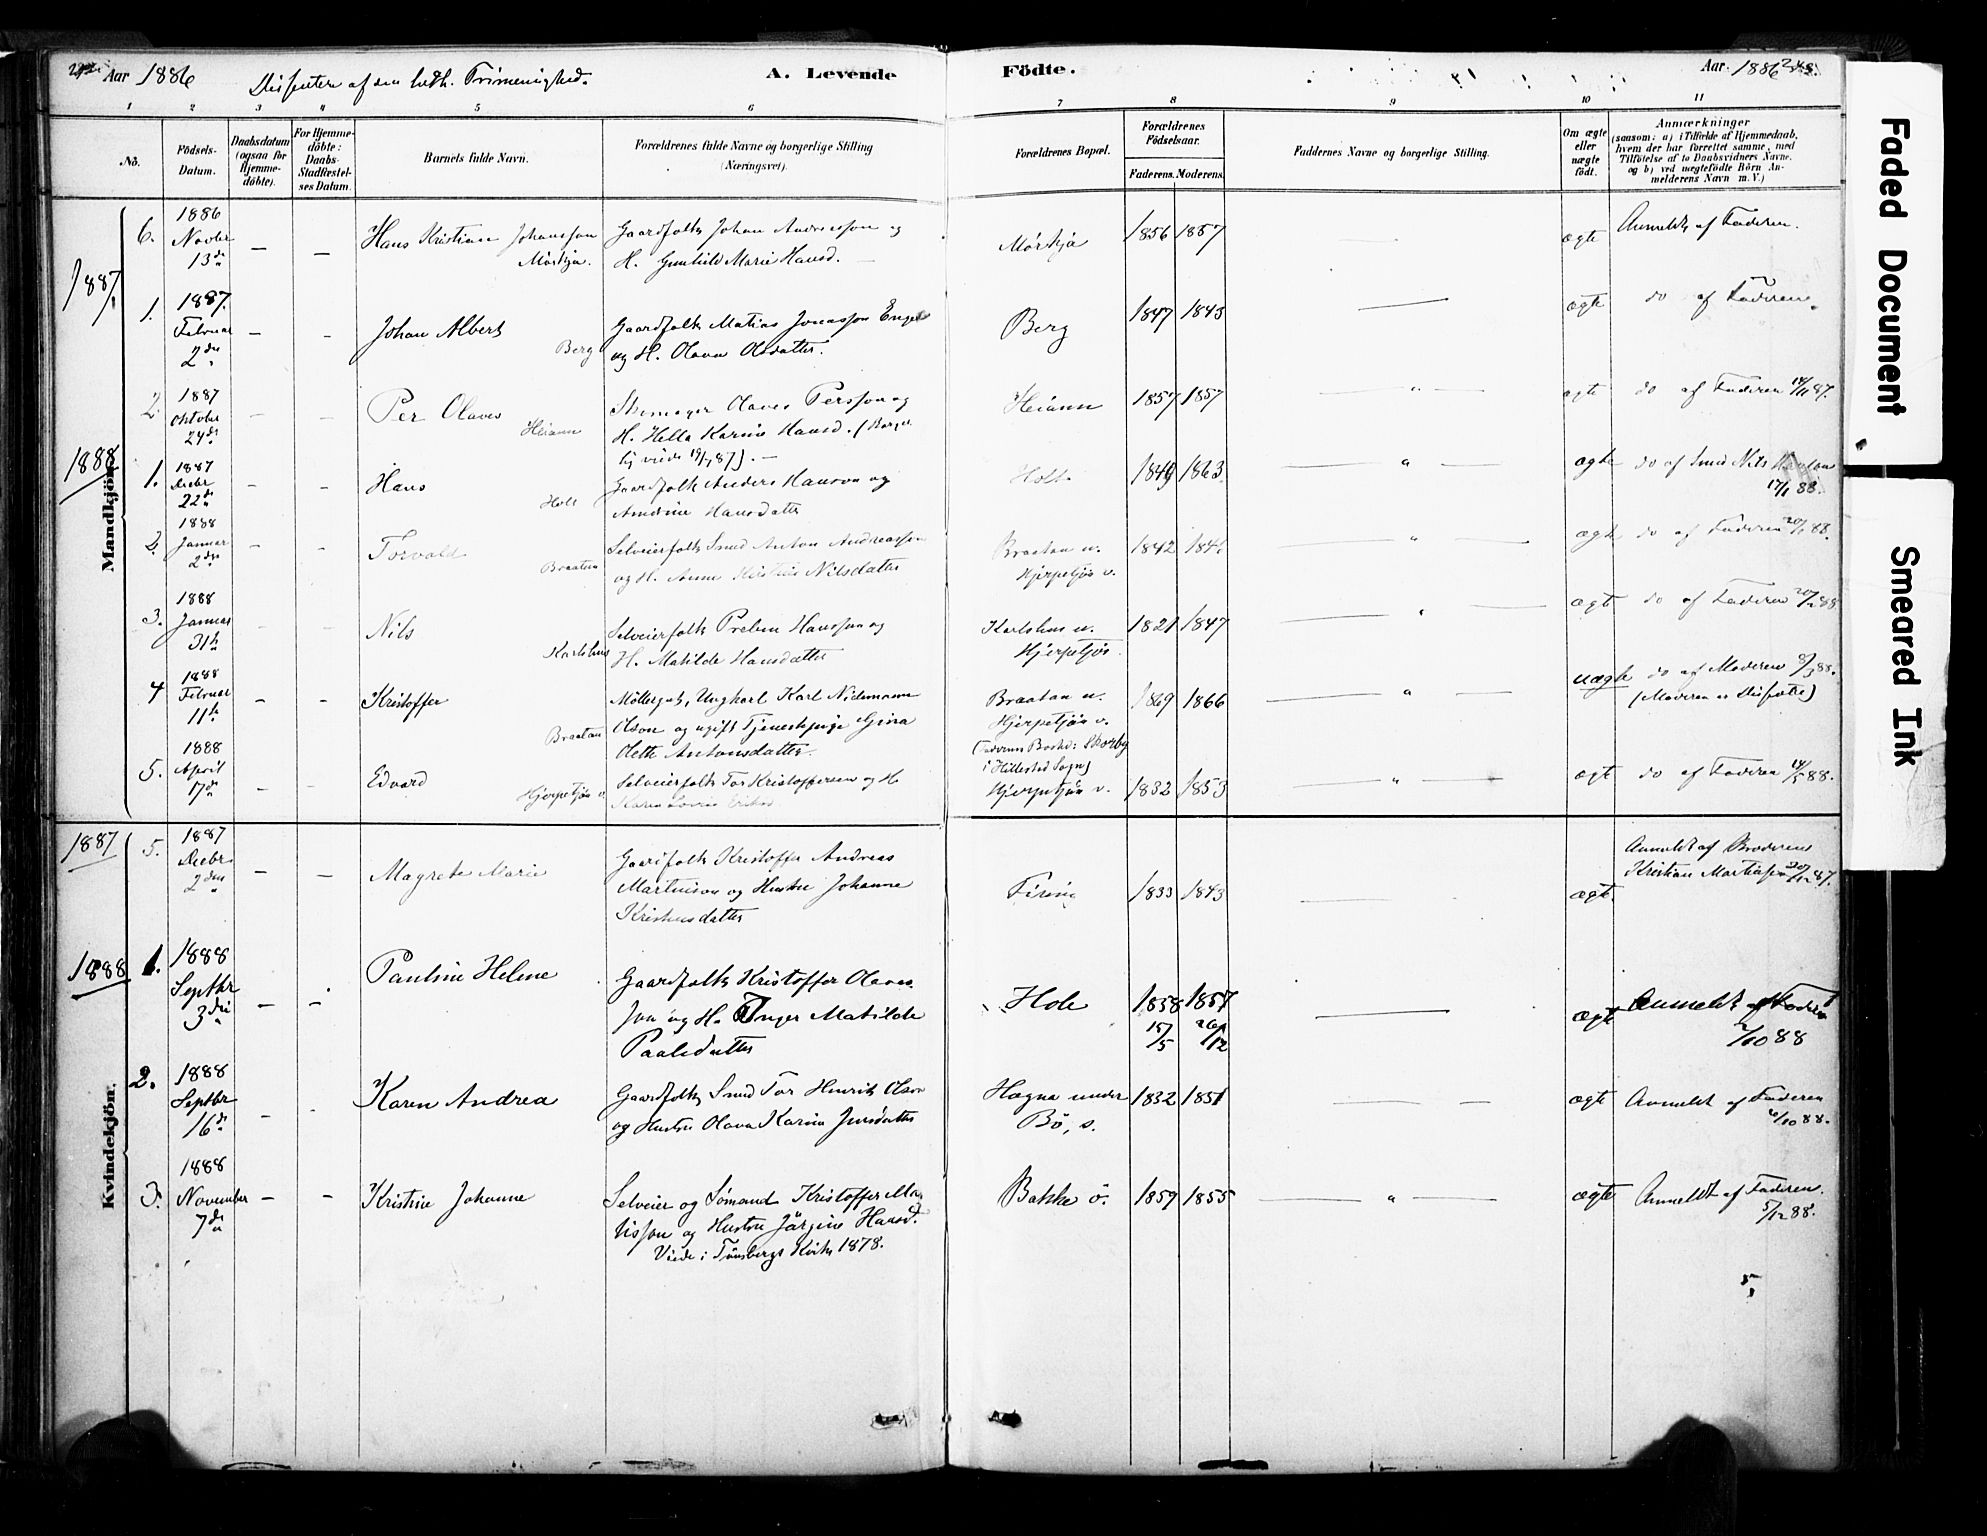 Aar 1886 Dissentere af den luth. Trimenighed. A. Levende Födte. Aar 1886
1 2 3 4 5 6 7 8 9 10 11
No. Födsels-Datum. Daabsdatum (ogsaa for Hjemme-döbte). For Hjemme-döbte: Daabs-Stadfæstel-ses Datum. Barnets fulde Navn. Forældrenes fulde Navne og borgerlige Stilling (Næringsvei). Forældrenes Bopæl. Forældrenes Födselsaar. Faderens. Moderens. Faddernes Navne og borgerlige Stilling. Om ægte eller uægte födt. Anmærkninger
(saasom: a) i Tilfælde af Hjemmedaab,
hvem der har forrettet samme, med
Tilföielse af to Daabsvidners Navne.
og b) ved uægtefödte Börn An-
melderens Navn m. V.)
Mandkjön.
6. 1886 Novbr 13de — — Hans Kristian Johansson Gaardfolk Johan Andersson og Mørkja 1856 1857 ægte Anmeldt af Faderen.
Mørkja. H. Gunhild Marie Hansd. —
1887
1. 1887. Februar 2den — — Johan Albert Gaardfolk Matias Jonasson Enge Berg 1847 1843 — ægte do af Faderen.
Berg og H. Olava Olsdatter.
2. 1887 Oktober 24de — — Per Olaves Skomager Olaves Persson og Heiann 1857 1857 — " — ægte do af Faderen 14/11 87.
Heiann H. Hella Karine Hansd. (Borger
lig viede 19/1 87). —
1888
1. 1887 Decbr 22de — — Hans Gaardfolk Anders Hanson og Holt 1849 1863. — " — ægte do af Smed Nils
Holt Andrine Hansdatter 17/1 88.
2. 1888 Januar 2den — — Torvald Selveierfolk Smed Anton Andreasson Braatan u. 1842 184 — " — ægte do af Faderen 20/1 88.
Braatan og H. Anne Nilsdatter Hjerpetjøn v.
3. 1888 Januar 31te — — Nils Selveierfolk Preben Hansson og Karlshus u. 1821 1847 — " — ægt do af Faderen 20/2 88
Karlshus H. Matilde Hansdatter Hjerpetjøn.
4 1888 Februar 11te — — Kristoffer Møllergut, Ungkarl Karl Nidemann Braatan u. 1869 1866 — " — uægte do af Moderen 8/3 88.
Braatan Olson og ugift Tjenestepige Gina Hjerpetjøn v. (Moderen er Dissenter)
Oleth Antonsdatter. (Faderens Bosted: Skorby
i Hillestad Sogn)
5. 1888 April 17de — — Edvard Selveierfolk Tor Kristoffersen og H. Hjerpetjøn v. 1832 1853 — " — ægt do af Faderen 18/5 88.
Hjerpetjøn v. Karen Lovise
Kvindekjön.
1887
5. 1887 Decbr 2den — — Magrete Marie Gaardfolk Kristoffer Andreas Firing 1833 1843 — ægt. Anmeldt af Broderen
Martinson og Hustru Johanne Kristian 20/12 87.
Kristensdatter
1888
1. 1888 Septbr 3die — — Pauline Helene Gaardfolk Kristoffer Olaves Hole 1858 1857 — ægt Anmeldt af Faderen
son og H. Inger Matilde 15/5 26/12 2/10 88
Paalsdatter
2. 1888 Septbr 16de — — Karen Andrea Gaardfolk Smed Tor Henrik Olson Hagne under 1832 1851 — — ægte Anmeldt af Faderen
og Hustru Olava Karine Jensdatter Bö, s. 6/10 88.
3. 1888 November 7de — — Kristine Johanne Selveier og Sömand Kristoffer Mar Bakke ö. 1859 1855 — " — ægte Anmeldt af Faderen.
tisson og Hustru Järgine Hansd. 5/12 88.
Viede i Tönsbergs Kirke 1878.
5,
Faded Document
Smeared Ink